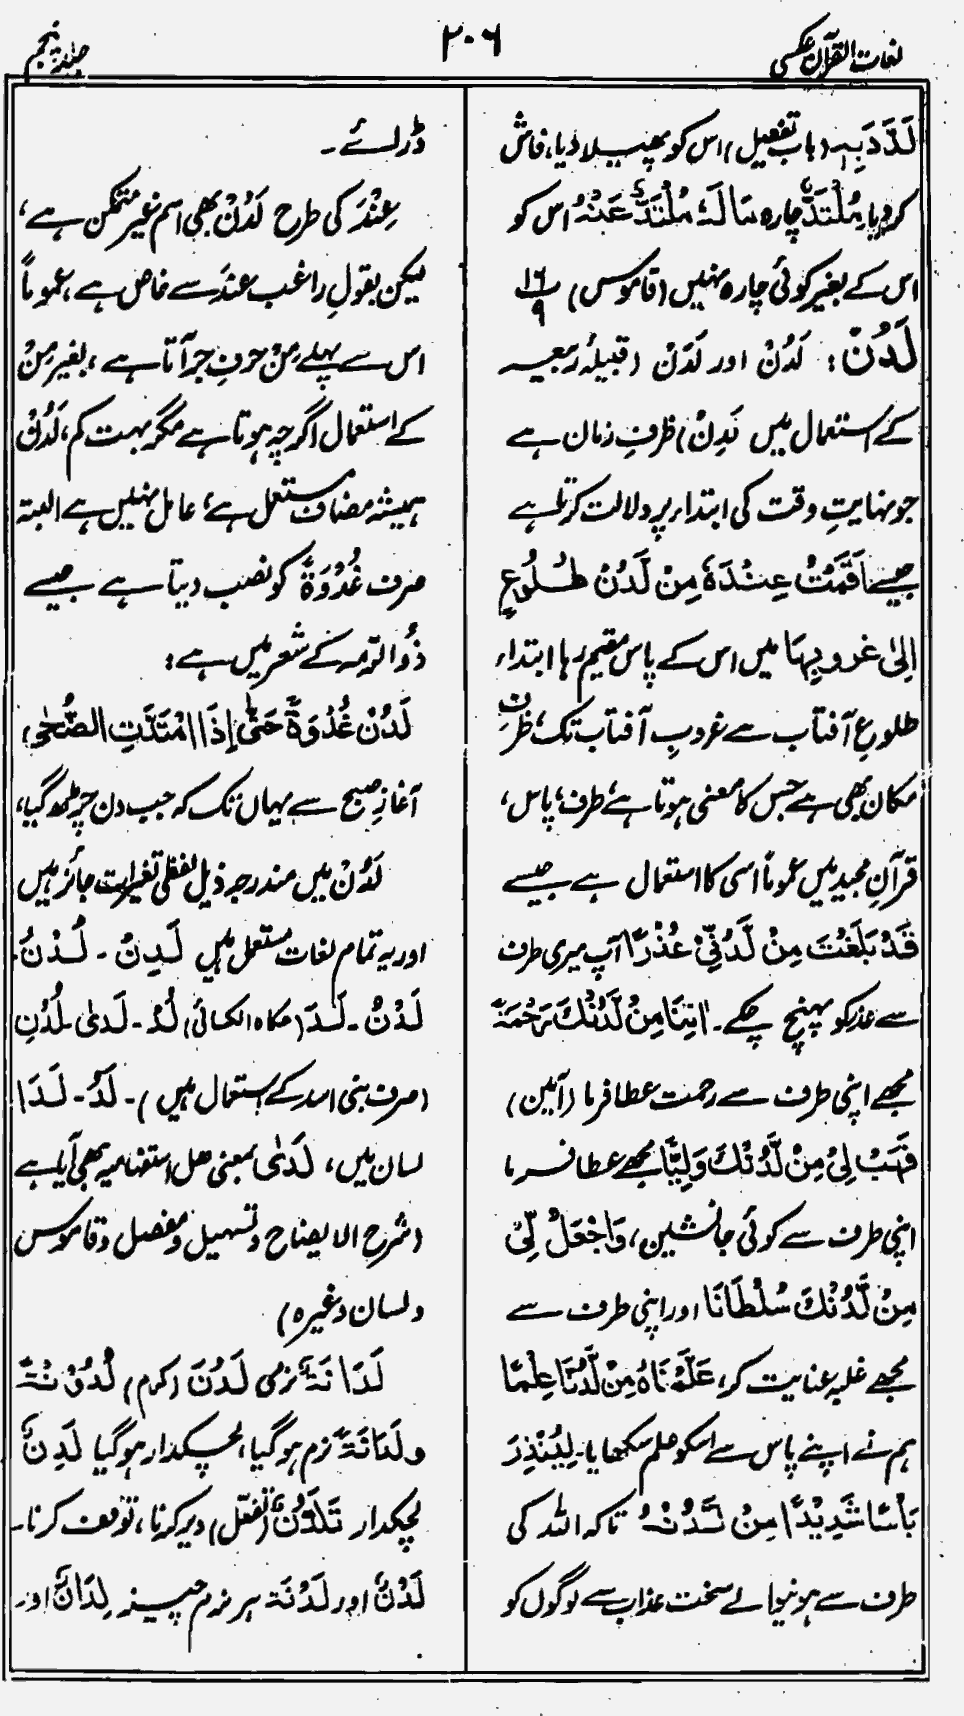 لغات القرآن عکسی
۲۰۶
جلد پنجم
لَدَّدَبِہٖ (باب تفعیل) اس کو پھیلا دیا، فاش
کر دیا، مُلْتَدٌّ چارہ مَالَہٗ مُلْتَدٌّ عَنْہُ اس کو
اس کے بغیر کوئی چارہ نہیں (قاموس) ۱۶/۹
لَدُنْ: لَدُنْ اور لَدَنْ (قبیلۂ ربیعہ
کے استعمال میں لَدِنْ) ظرفِ زمان ہے
جو نہایتِ وقت کی ابتداء پر دلالت کرتا ہے
جیسے اَقَمْتُ عِنْدَہٗ مِنْ لَدُنْ طُلُوْعِ
اِلیٰ غروبِہَا میں اس کے پاس مقیم رہا ابتداء
طلوعِ آفتاب سے غروبِ آفتاب تک، ظرف
مکان بھی ہے جس کا معنی ہوتا ہے، طرف، پاس،
قرآنِ مجید میں عموماً اسی کا استعمال ہے جیسے
قَدْ بَلَغْتَ مِنْ لَّدُنِّیْ عُذْرًا آپ میری طرف
سے عذر کو پہنچ چکے۔ اٰتِنَا مِنْ لَّدُنْكَ رَحْمَۃً
مجھے اپنی طرف سے رحمت عطا فرما (آمین)
فَہَبْ لِیْ مِنْ لَّدُنْكَ وَلِیًّا مجھے عطا فرما
اپنی طرف سے کوئی جانشین، وَاجْعَلْ لِّیْ
مِنْ لَّدُنْكَ سُلْطَانًا اور اپنی طرف سے
مجھے غلبہ عنایت کر، عَلَّمْنَاہُ مِنْ لَّدُنَّا عِلْمًا
ہم نے اپنے پاس سے اسکو علم سکھایا۔ لِیُنْذِرَ
بَأْسًا شَدِیْدًا مِنْ لَّدُنْہُ تاکہ اللہ کی
طرف سے ہونیوالے سخت عذاب سے لوگوں کو
ڈرائے۔
عِنْدَ کی طرح لَدُنْ بھی اسم غیر متمکن ہے،
لیکن بقول راغب عندَ سے خاص ہے، عموماً
اس سے پہلے مِنْ حرفِ جر آتا ہے، بغیر مِنْ
کے استعمال اگرچہ ہوتا ہے مگر بہت کم، لَدُنْ
ہمیشہ مضاف مستعمل ہے، عامل نہیں ہے البتہ
صرف غُدْوَۃً کو نصب دیتا ہے جیسے
ذُوالرّمہ کے شعر میں ہے:
لَدُنْ غُدْوَۃً حَتّٰی اِذَا امْتَدَّتِ الضُّحٰی
آغازِ صبح سے یہاں تک کہ جب دن چڑھ گیا،
لَدُنْ میں مندرجہ ذیل لفظی تغیرات جائز ہیں
اور یہ تمام لغات مستعمل ہیں لَدِنْ ۔ لُدْنُ۔
لَدْنُ ۔ لَدَ (حکاہ الکسائی) لُدْ ۔ لَدیٰ ۔ لُدُنِ
(صرف بنی اسد کے استعمال میں) ۔ لَدُ ۔ لَدَا
لسان میں، لَدیٰ بمعنی ھل استفہامیہ بھی آیا ہے
(شرح الایضاح و تسہیل و مفصل و قاموس
و لسان وغیرہ)
لَدَانَۃٌ نرمی لَدُنَ (کرم) لُدُوْنَۃً
و لَدَانَۃً نرم ہو گیا، لچکدار ہو گیا لَدِنٌ
لچکدار تَلَدُّنٌ (تفعّل) دیر کرنا، توقف کرنا۔
لَدْنٌ اور لَدْنَۃ ہر نرم چیز لِدَانٌ اور